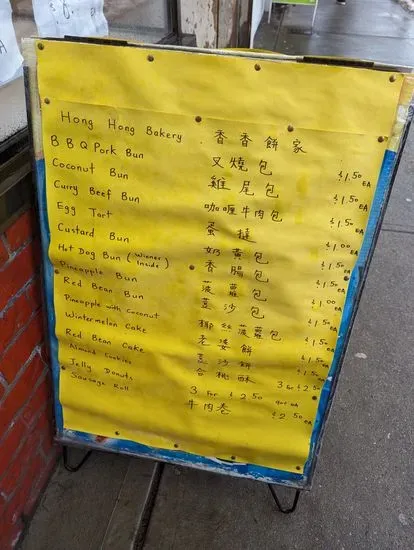 Hong Hong Bakery 香香餅家
BBQ Pork Bun 叉燒包 $1.50 EA
Coconut Bun 雞尾包 $1.50 EA
Curry Beef Bun 咖喱牛肉包 $1.50 EA
Egg Tart 蛋撻 $1.00 EA
Custard Bun 奶黃包 $1.50 EA
Hot Dog Bun (Wiener Inside) 香腸包 $1.50 EA
Pineapple Bun 菠蘿包 $1.00 EA
Red Bean Bun 豆沙包 $1.50 EA
Pineapple with Coconut 椰丝菠蘿包 $1.50 EA
Wintermelon Cake 老婆餅 $1.50 EA
Red Bean Cake 豆沙餅 $1.50 EA
Almond Cookies 合桃酥 3 for $2.50
Jelly Donuts 3 For $2.50
Sausage Roll 牛肉卷 $2.50 EA